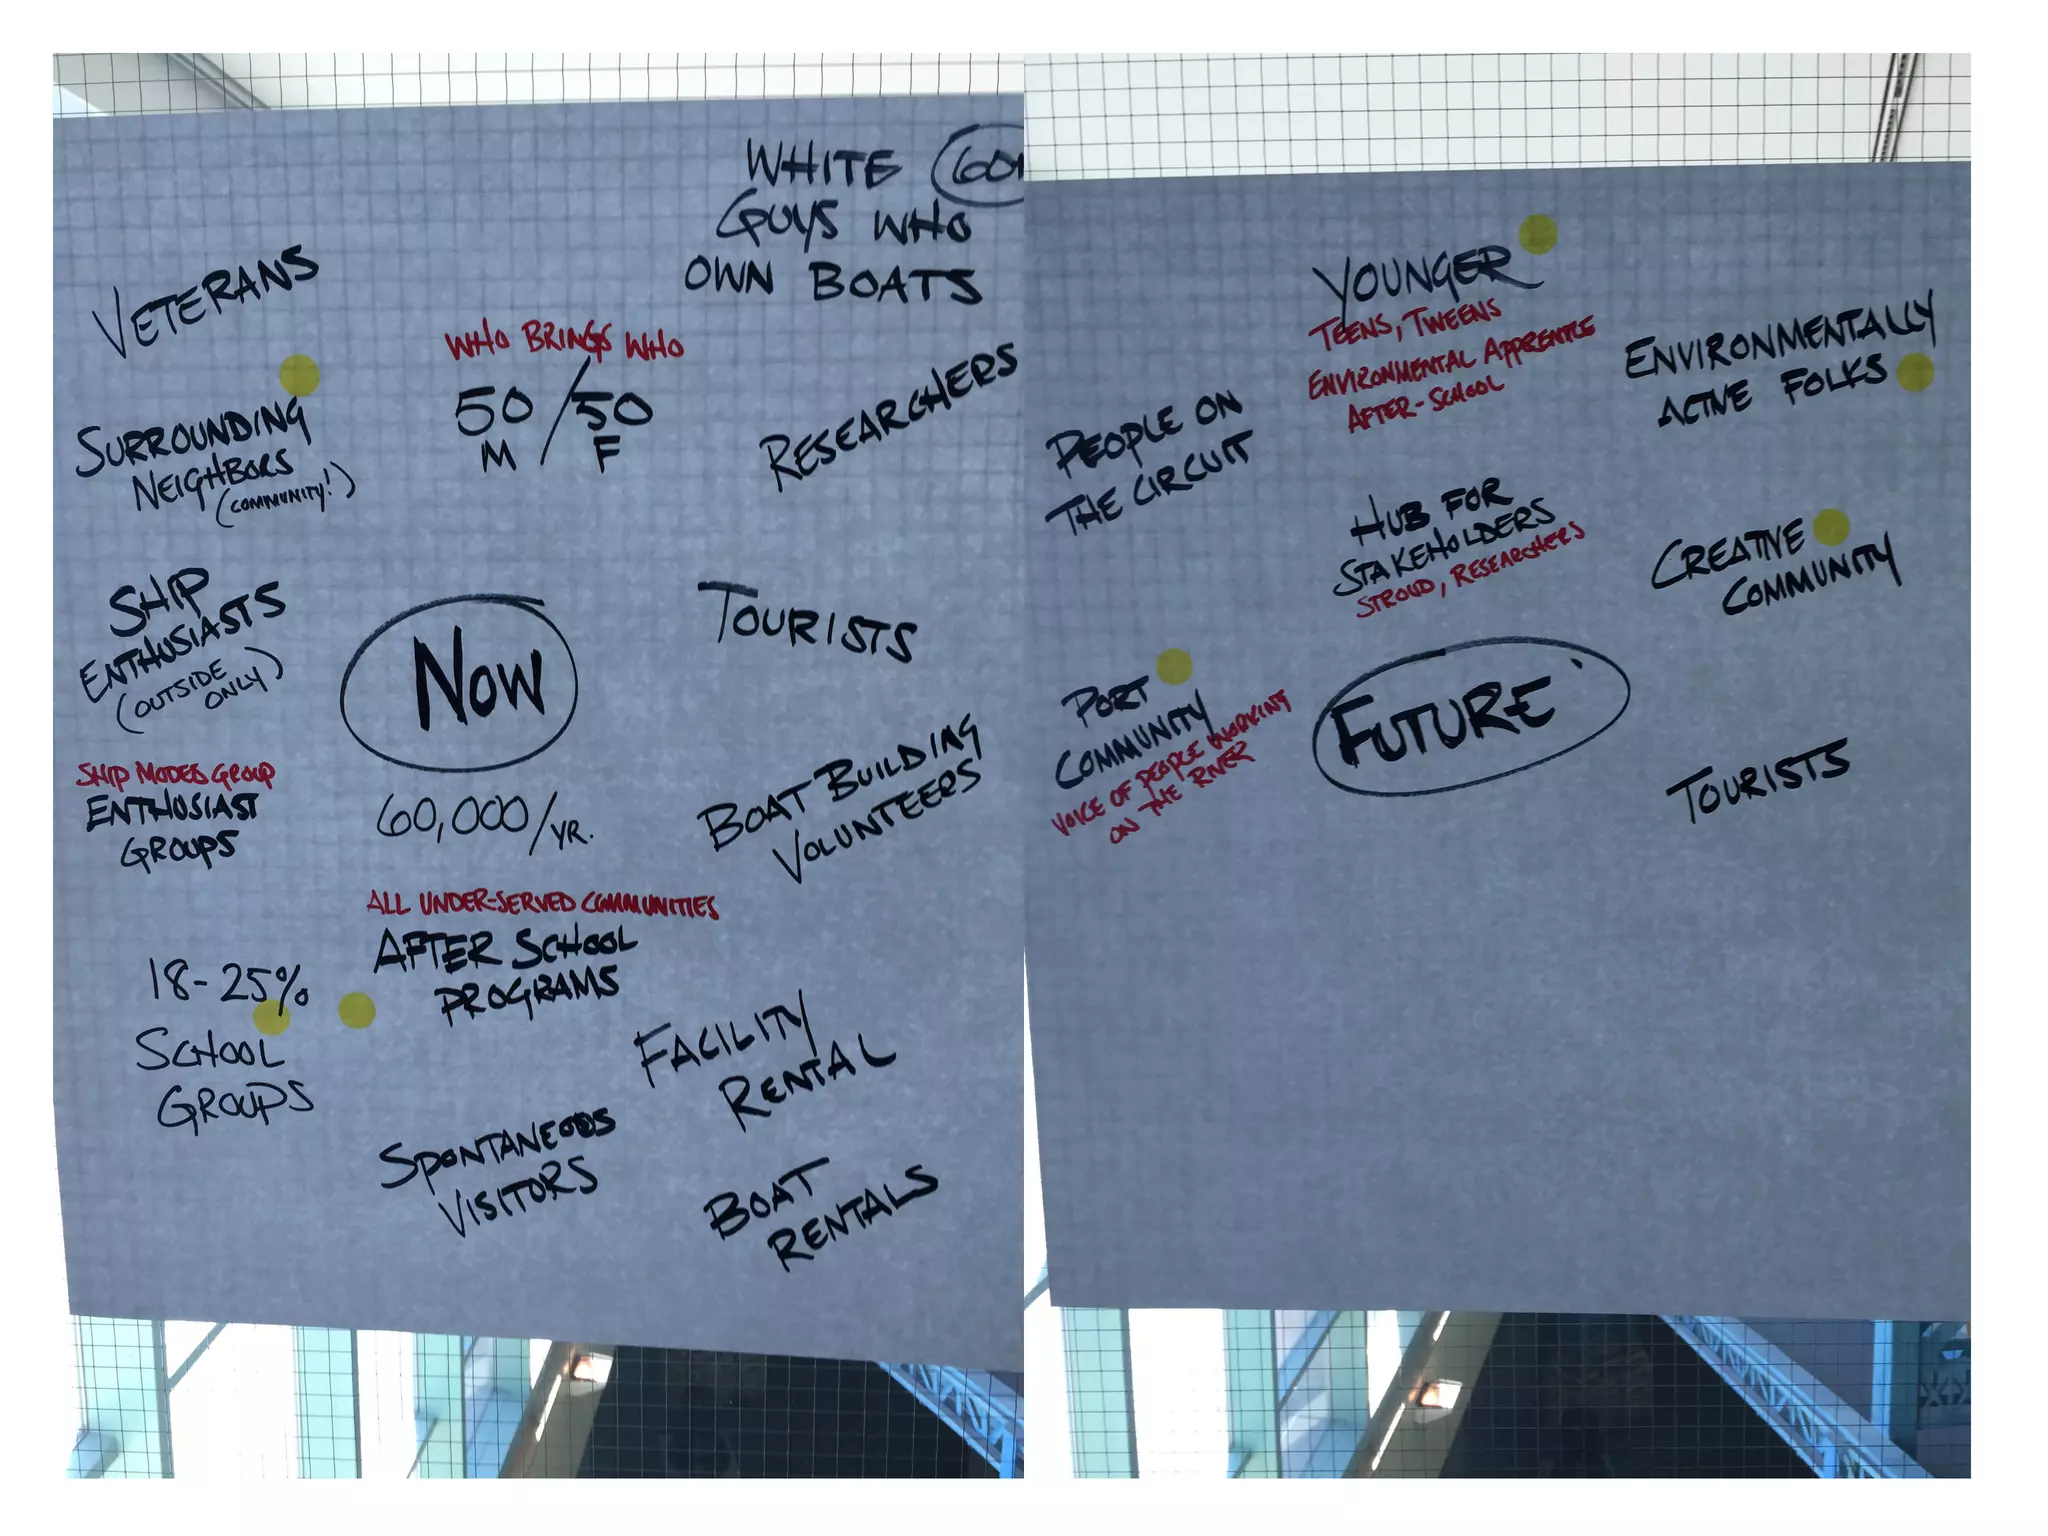 WHITE
GUYS WHO
OWN BOATS
VETERANS
WHO BRINGS WHO
50 / 50
M F
RESEARCHERS
SURROUNDING
NEIGHBORS
(COMMUNITY!)
SHIP
ENTHUSIASTS
(OUTSIDE
ONLY)
NOW
60,000/YR.
TOURISTS
SHIP MODELS GROUP
ENTHUSIAST
GROUPS
BOAT BUILDING
VOLUNTEERS
ALL UNDER-SERVED COMMUNITIES
AFTER SCHOOL
PROGRAMS
18-25%
SCHOOL
GROUPS
FACILITY
RENTAL
SPONTANEOUS
VISITORS
BOAT
RENTALS
YOUNGER
TEENS, TWEENS
ENVIRONMENTAL APPRENTICE
AFTER-SCHOOL
ENVIRONMENTALLY
ACTIVE FOLKS
PEOPLE ON
THE CIRCUIT
HUB FOR
STAKEHOLDERS
STROUD, RESEARCHERS
CREATIVE
COMMUNITY
PORT
COMMUNITY
VOICE OF PEOPLE WORKING
ON THE RIVER
FUTURE
TOURISTS